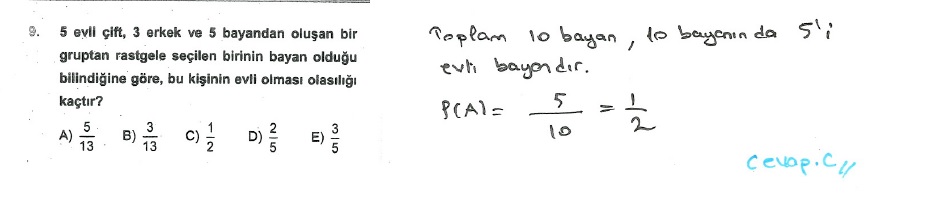 9. 5 evli çift, 3 erkek ve 5 bayandan oluşan bir
gruptan rastgele seçilen birinin bayan olduğu
bilindiğine göre, bu kişinin evli olması olasılığı
kaçtır?
A) 5/13 B) 3/13 C) 1/2 D) 2/5 E) 3/5
Toplam 10 bayan, 10 bayanın da 5'i
evli bayandır.
P(A) = 5/10 = 1/2
Cevap.C//